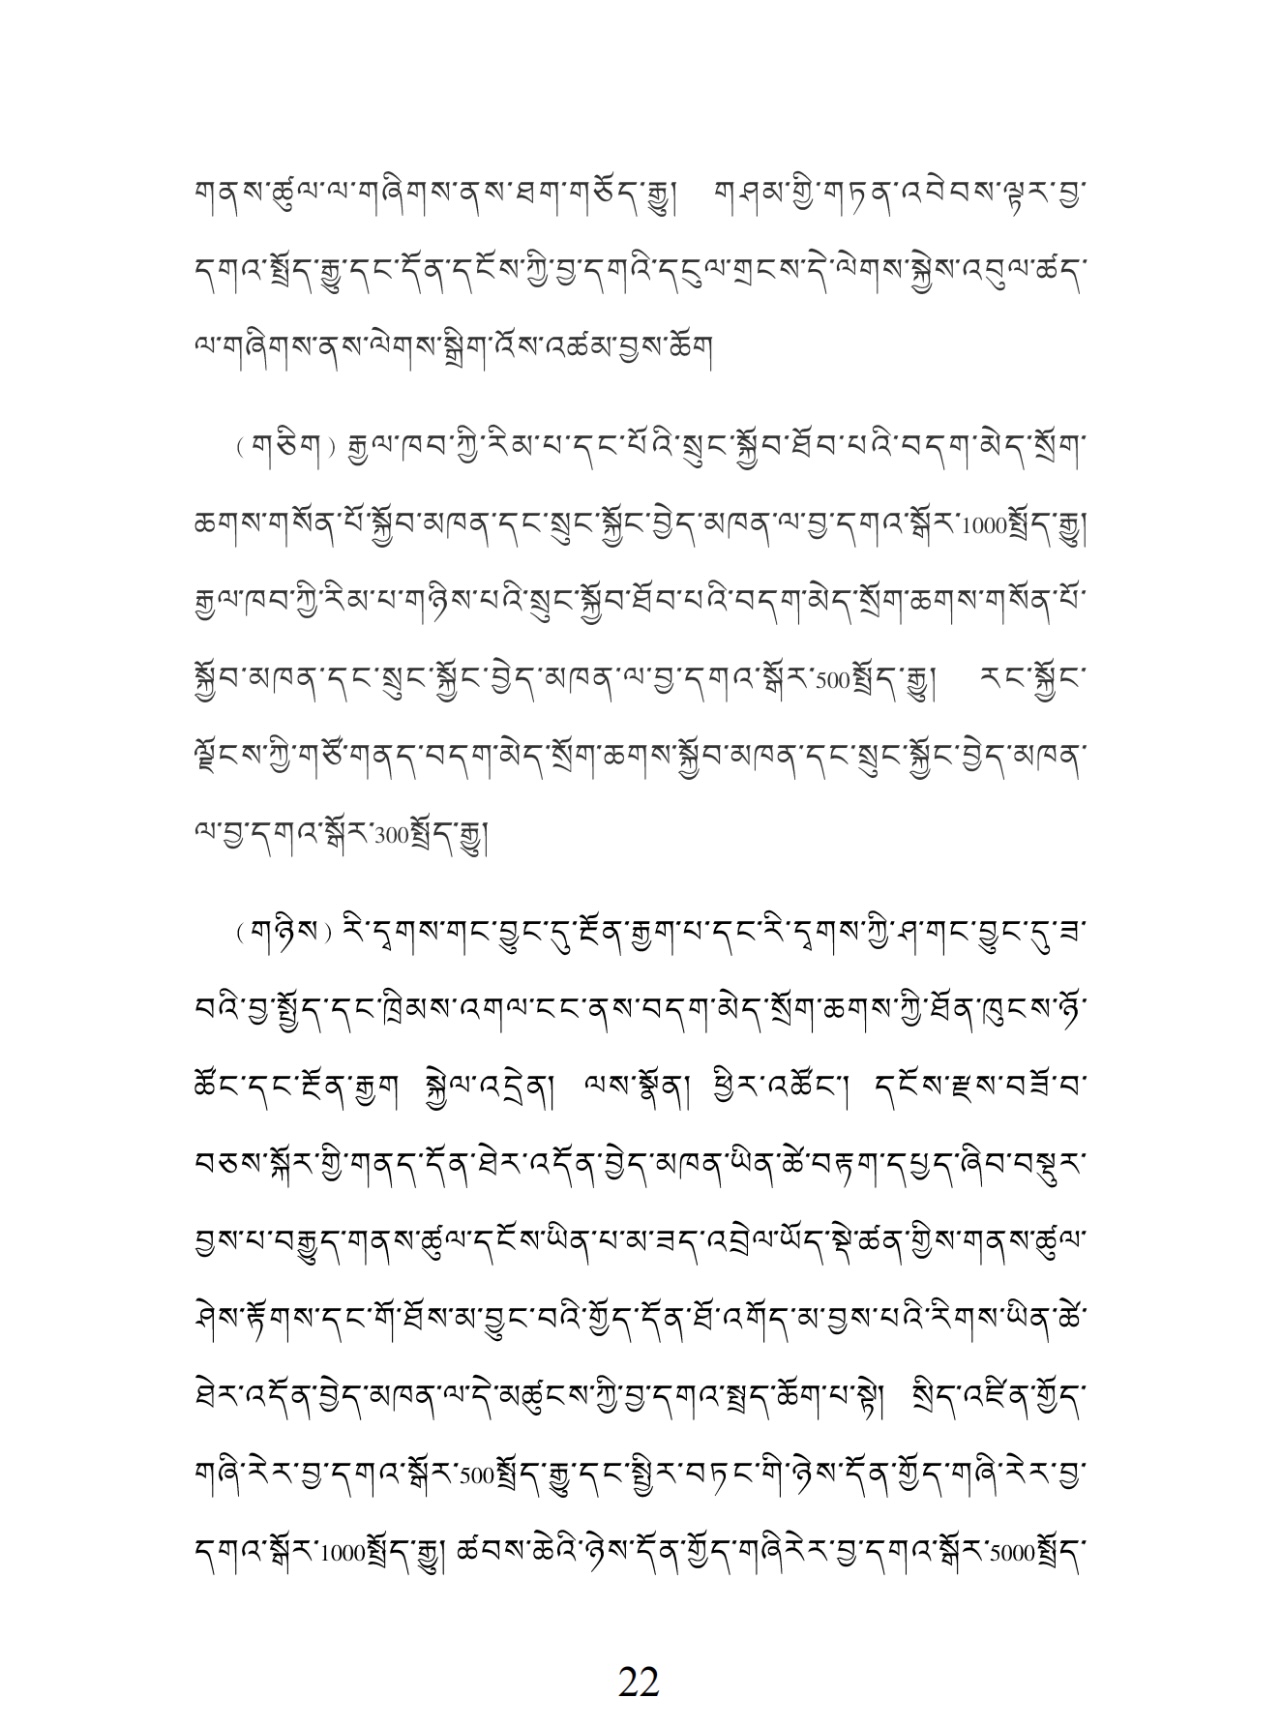 གནས་ཚུལ་ལ་གཞིགས་ནས་ཐག་གཅོད་རྒྱུ། གཤམ་གྱི་གཏན་འབེབས་ལྟར་བྱ་
དགའ་སྤྲོད་རྒྱུ་དང་དོན་དངོས་ཀྱི་བྱ་དགའི་དངུལ་གྲངས་དེ་ལེགས་སྐྱེས་འབུལ་ཚད་
ལ་གཞིགས་ནས་ལེགས་སྒྲིག་འོས་འཚམ་བྱས་ཆོག
（གཅིག）རྒྱལ་ཁབ་ཀྱི་རིམ་པ་དང་པོའི་སྲུང་སྐྱོབ་ཐོབ་པའི་བདག་མེད་སྲོག་
ཆགས་གསོན་པོ་སྐྱོབ་མཁན་དང་སྲུང་སྐྱོང་བྱེད་མཁན་ལ་བྱ་དགའ་སྒོར་1000སྤྲོད་རྒྱུ།
རྒྱལ་ཁབ་ཀྱི་རིམ་པ་གཉིས་པའི་སྲུང་སྐྱོབ་ཐོབ་པའི་བདག་མེད་སྲོག་ཆགས་གསོན་པོ་
སྐྱོབ་མཁན་དང་སྲུང་སྐྱོང་བྱེད་མཁན་ལ་བྱ་དགའ་སྒོར་500སྤྲོད་རྒྱུ། རང་སྐྱོང་
ལྗོངས་ཀྱི་གཙོ་གནད་བདག་མེད་སྲོག་ཆགས་སྐྱོབ་མཁན་དང་སྲུང་སྐྱོང་བྱེད་མཁན་
ལ་བྱ་དགའ་སྒོར་300སྤྲོད་རྒྱུ།
（གཉིས）རི་དྭགས་གང་བྱུང་དུ་རྔོན་རྒྱག་པ་དང་རི་དྭགས་ཀྱི་ཤ་གང་བྱུང་དུ་ཟ་
བའི་བྱ་སྤྱོད་དང་ཁྲིམས་འགལ་ངང་ནས་བདག་མེད་སྲོག་ཆགས་ཀྱི་ཐོན་ཁུངས་ཉོ་
ཚོང་དང་རྔོན་རྒྱག སྐྱེལ་འདྲེན། ལས་སྣོན། ཕྱིར་འཚོང་། དངོས་རྫས་བཟོ་བ་
བཅས་སྐོར་གྱི་གནད་དོན་ཐེར་འདོན་བྱེད་མཁན་ཡིན་ཚེ་བརྟག་དཔྱད་ཞིབ་བསྡུར་
བྱས་པ་བརྒྱུད་གནས་ཚུལ་དངོས་ཡིན་པ་མ་ཟད་འབྲེལ་ཡོད་སྡེ་ཚན་གྱིས་གནས་ཚུལ་
ཤེས་རྟོགས་དང་གོ་ཐོས་མ་བྱུང་བའི་གྱོད་དོན་ཐོ་འགོད་མ་བྱས་པའི་རིགས་ཡིན་ཚེ་
ཐེར་འདོན་བྱེད་མཁན་ལ་དེ་མཚུངས་ཀྱི་བྱ་དགའ་སྤྲད་ཆོག་པ་སྟེ། སྲིད་འཛིན་གྱོད་
གཞི་རེར་བྱ་དགའ་སྒོར་500སྤྲོད་རྒྱུ་དང་སྤྱིར་བཏང་གི་ཉེས་དོན་གྱོད་གཞི་རེར་བྱ་
དགའ་སྒོར་1000སྤྲོད་རྒྱུ། ཚབས་ཆེའི་ཉེས་དོན་གྱོད་གཞིརེར་བྱ་དགའ་སྒོར་5000སྤྲོད་
22